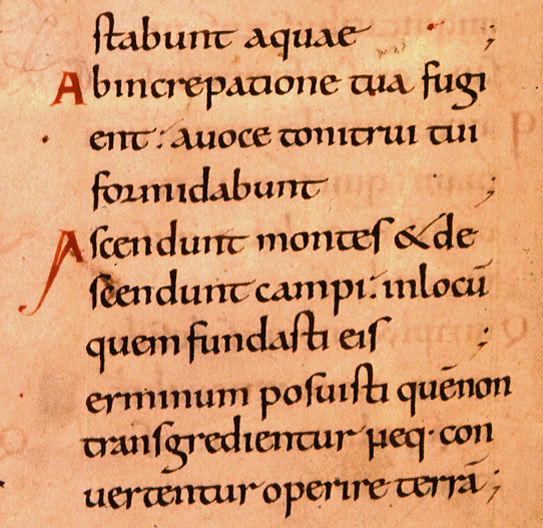 stabunt aquae ;
Abincrepatione tua fugi
ent: auoce tonitrui tui
formidabunt ;
Ascendunt montes & de
scendunt campi: inlocū
quem fundasti eis ;
erminum posuisti quēnon
transgredientur neq· con
uertentur operire terrā ;